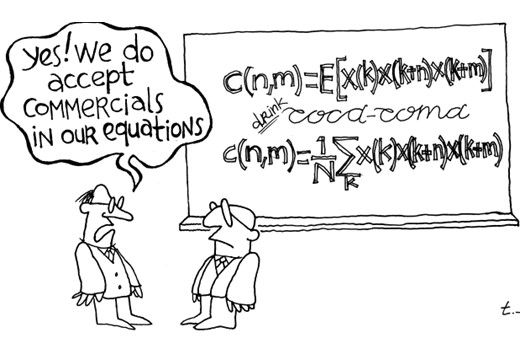 yes! We do
accept
COMMERCIALS
in our equations
C(n,m)=E[X(k)X(k+n)X(k+m)]
drink coca-coma
C(n,m)=1/N ∑k X(k)X(k+n)X(k+m)
t...